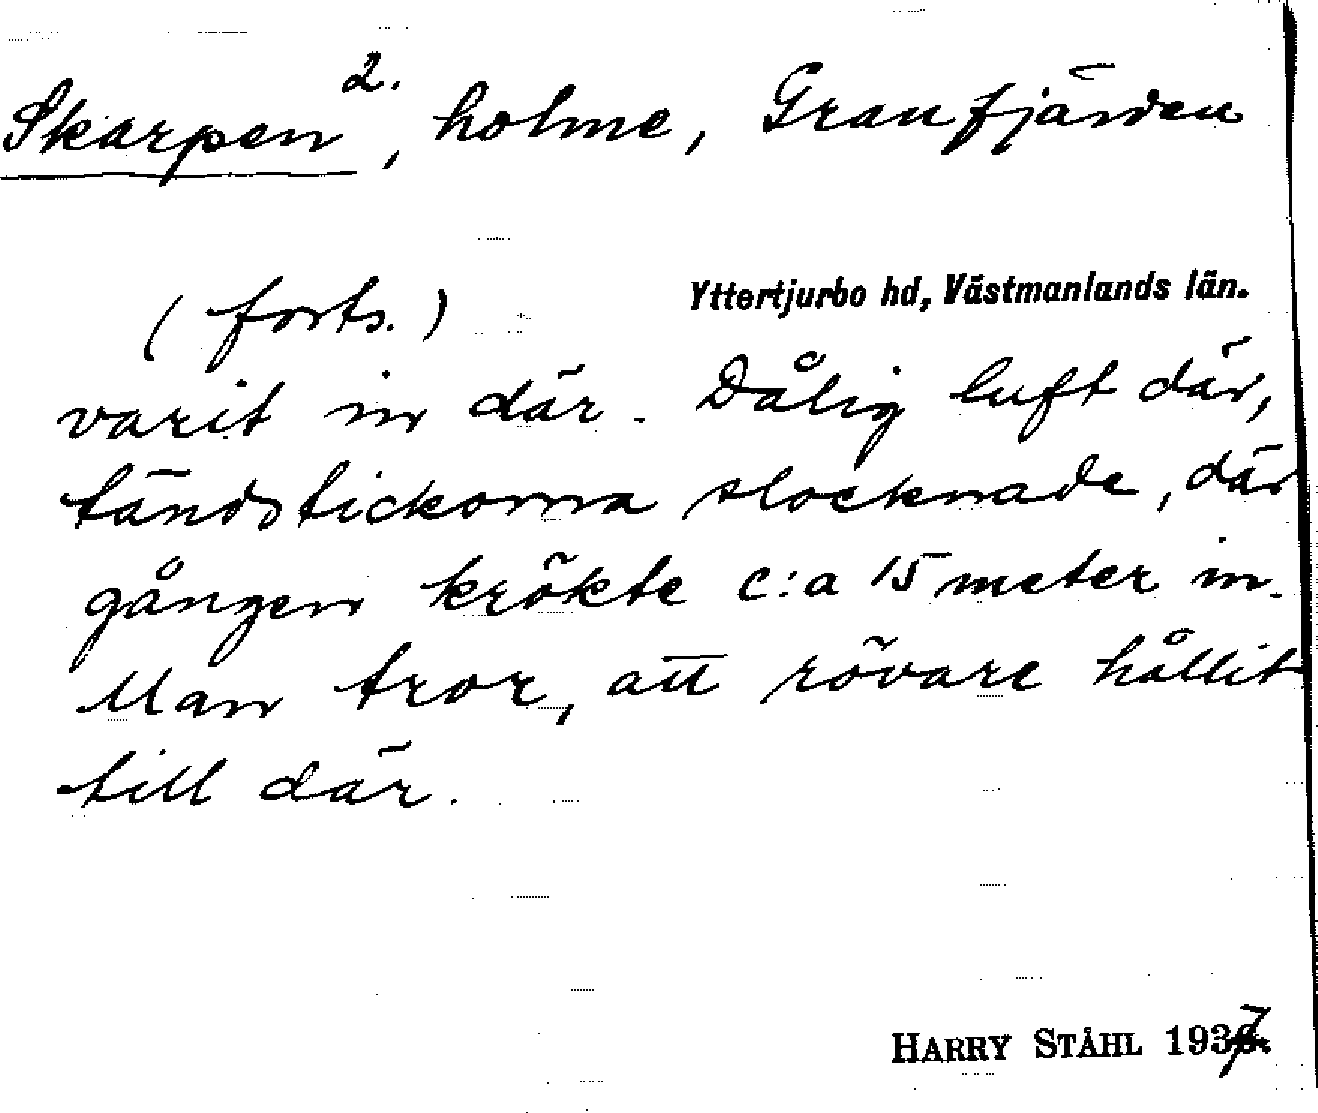 2.
Skarpen, holme, Granfjärden
(forts.)
Yttertjurbo hd, Västmanlands län.
varit in där. Dålig luft där,
tändstickorna slocknade, där
gången krökte c:a 15 meter in.
Man tror, att rövare hållit
till där.
HARRY STÅHL 1937